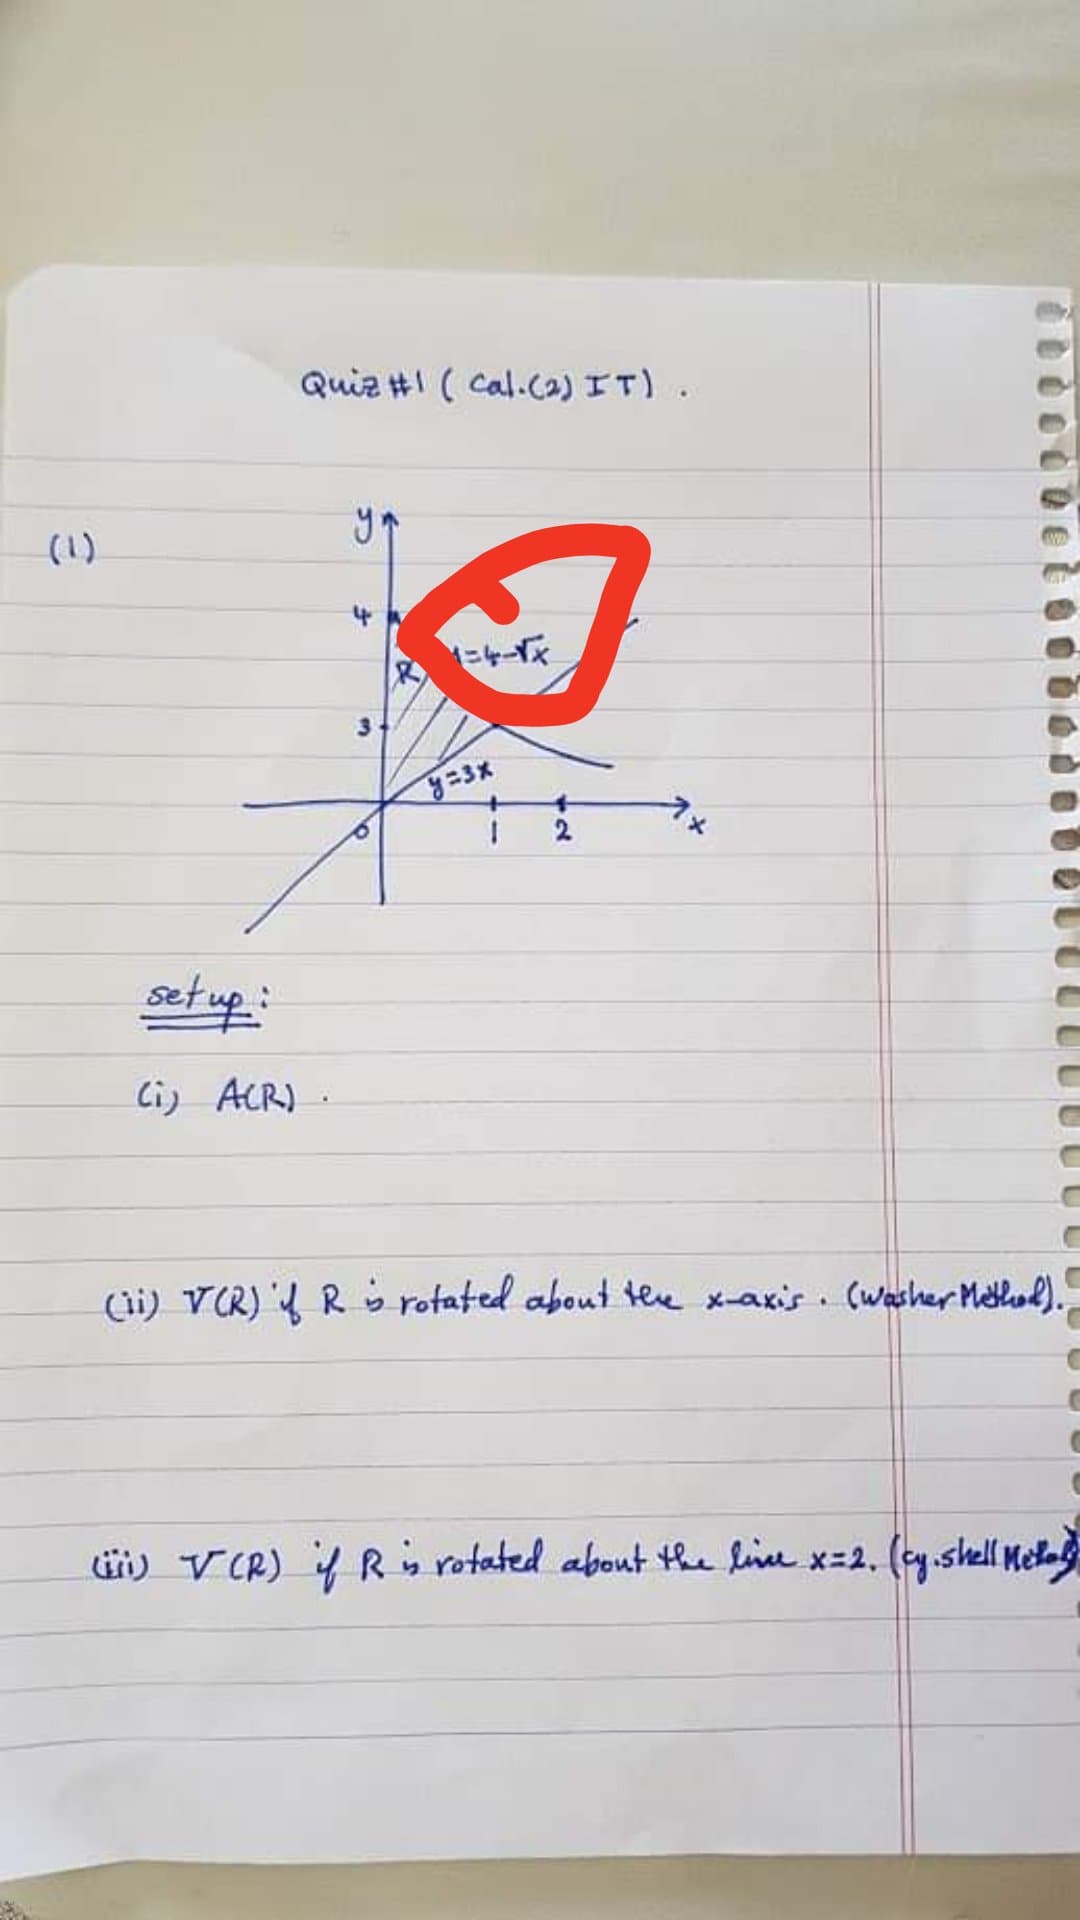 Quiz #1 ( Cal.(2) IT) .
(1)
y
4
R
=4-√x
3
y=3x
0
1
2
x
set up :
(i) A(R) .
(ii) V(R) if R is rotated about the x-axis . (washer Method).
(iii) V(R) if R is rotated about the line x=2. (cy.shell Method)